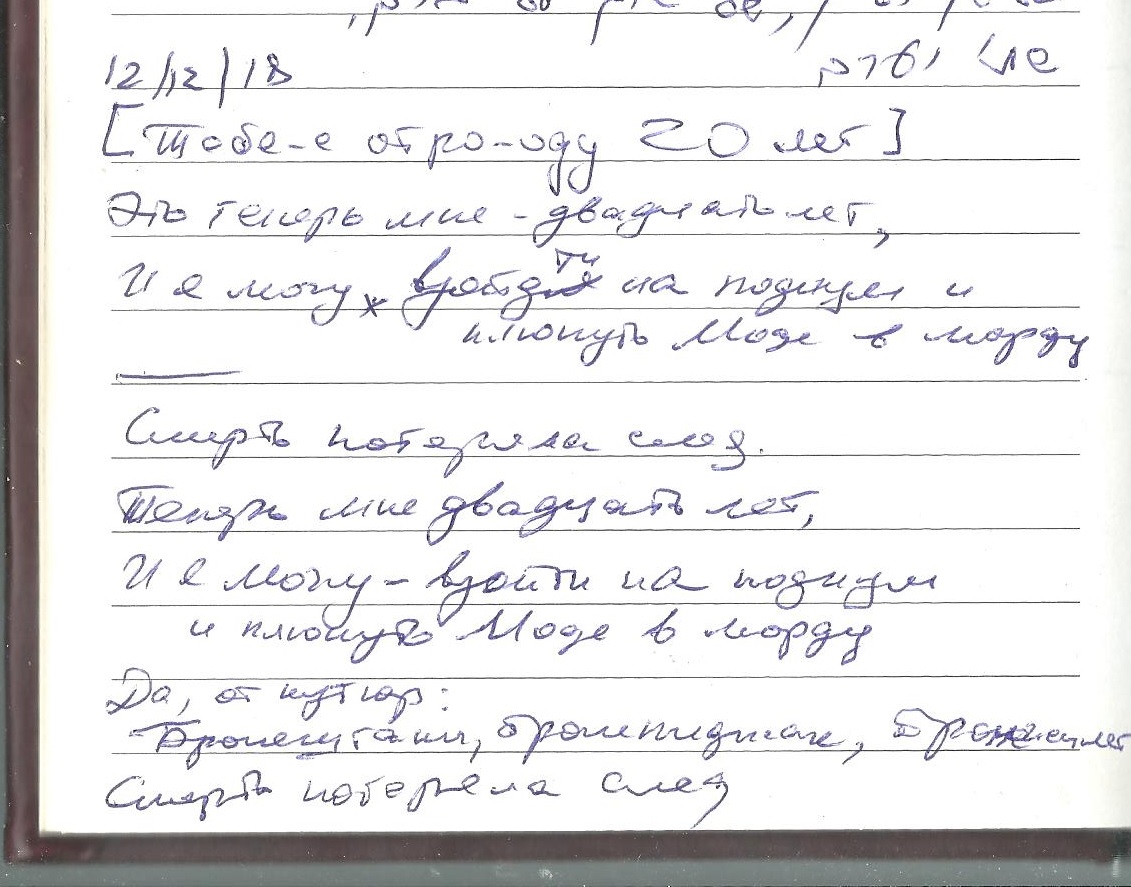 12/12/18
[Тобе-е отро-оду 20 лет]
Это теперь мне - двадцать лет,
И я могу взойти на подиум и
плюнуть Моде в морду
Смерть потеряла след.
Теперь мне двадцать лет,
И я могу – взойти на подиум
и плюнуть Моде в морду
Да, от кутюр:
Бронештаны, бронепиджак,
Смерть потеряла след